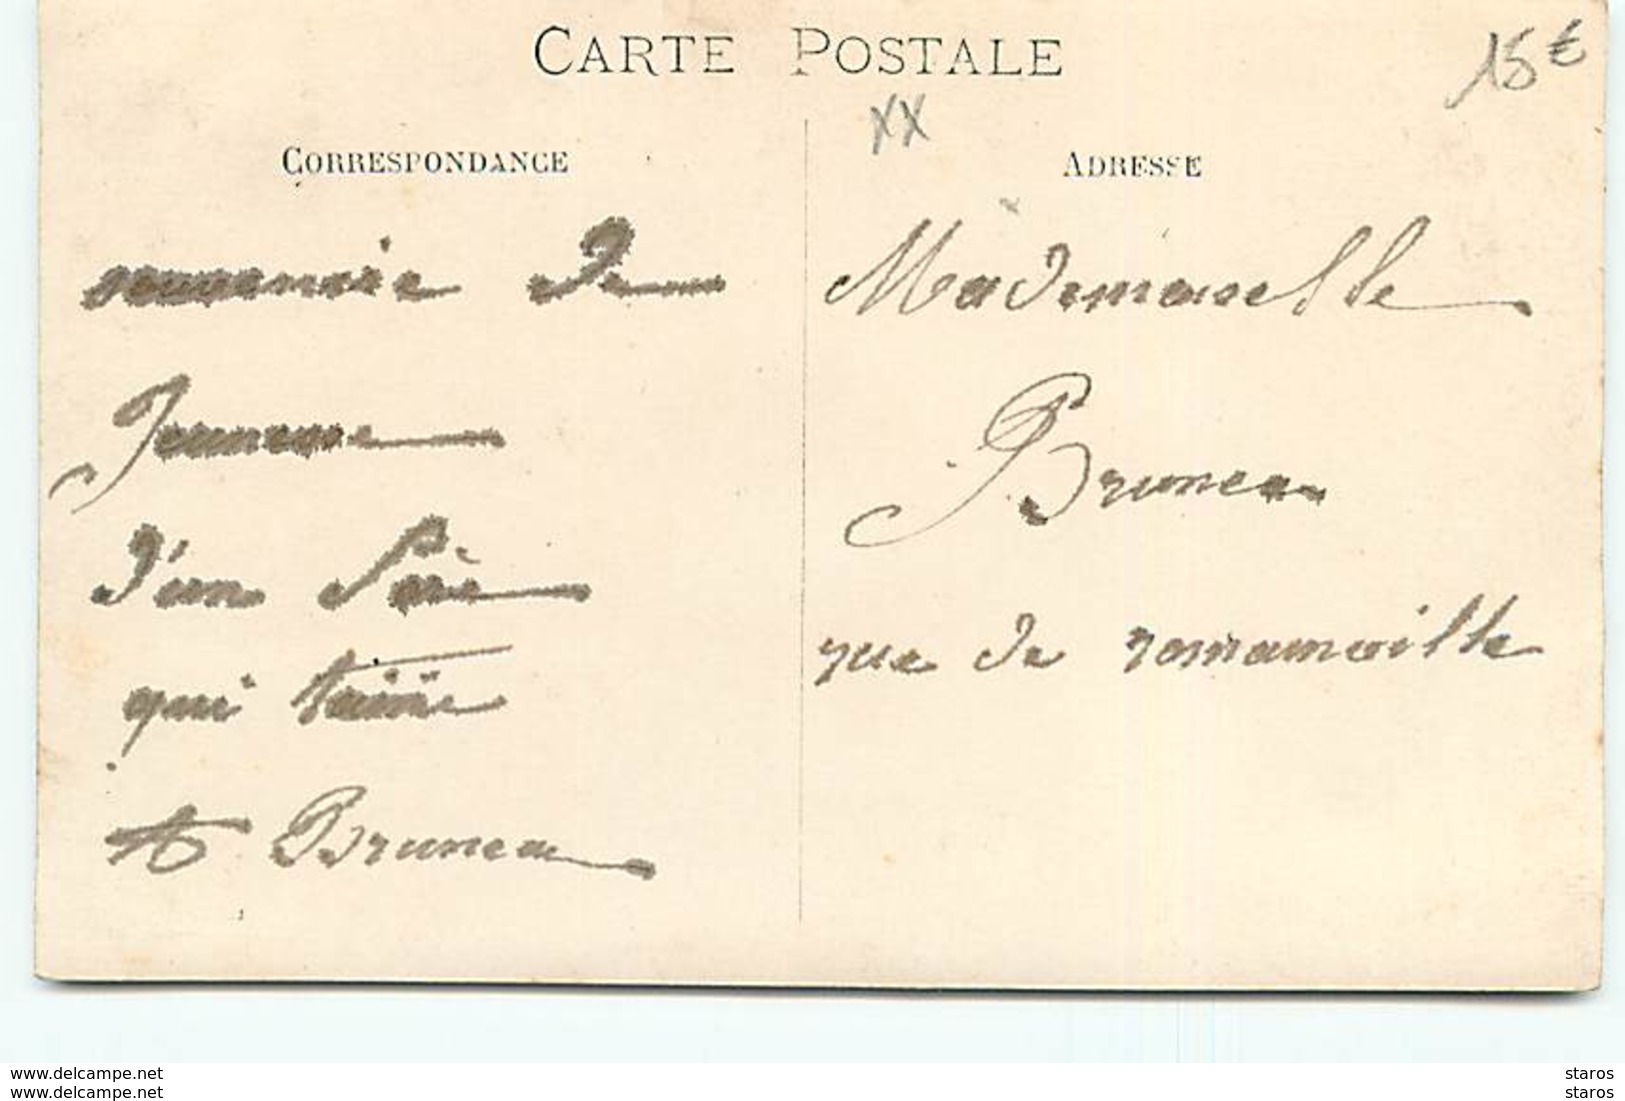 CARTE POSTALE
15€
XX
CORRESPONDANCE
souvenire de
Jeunesse
d'un Père
qui taime
A Bruneau
ADRESSE
Mademoiselle
Bruneau
rue de romainville
www.delcampe.net
www.delcampe.net
staros
staros